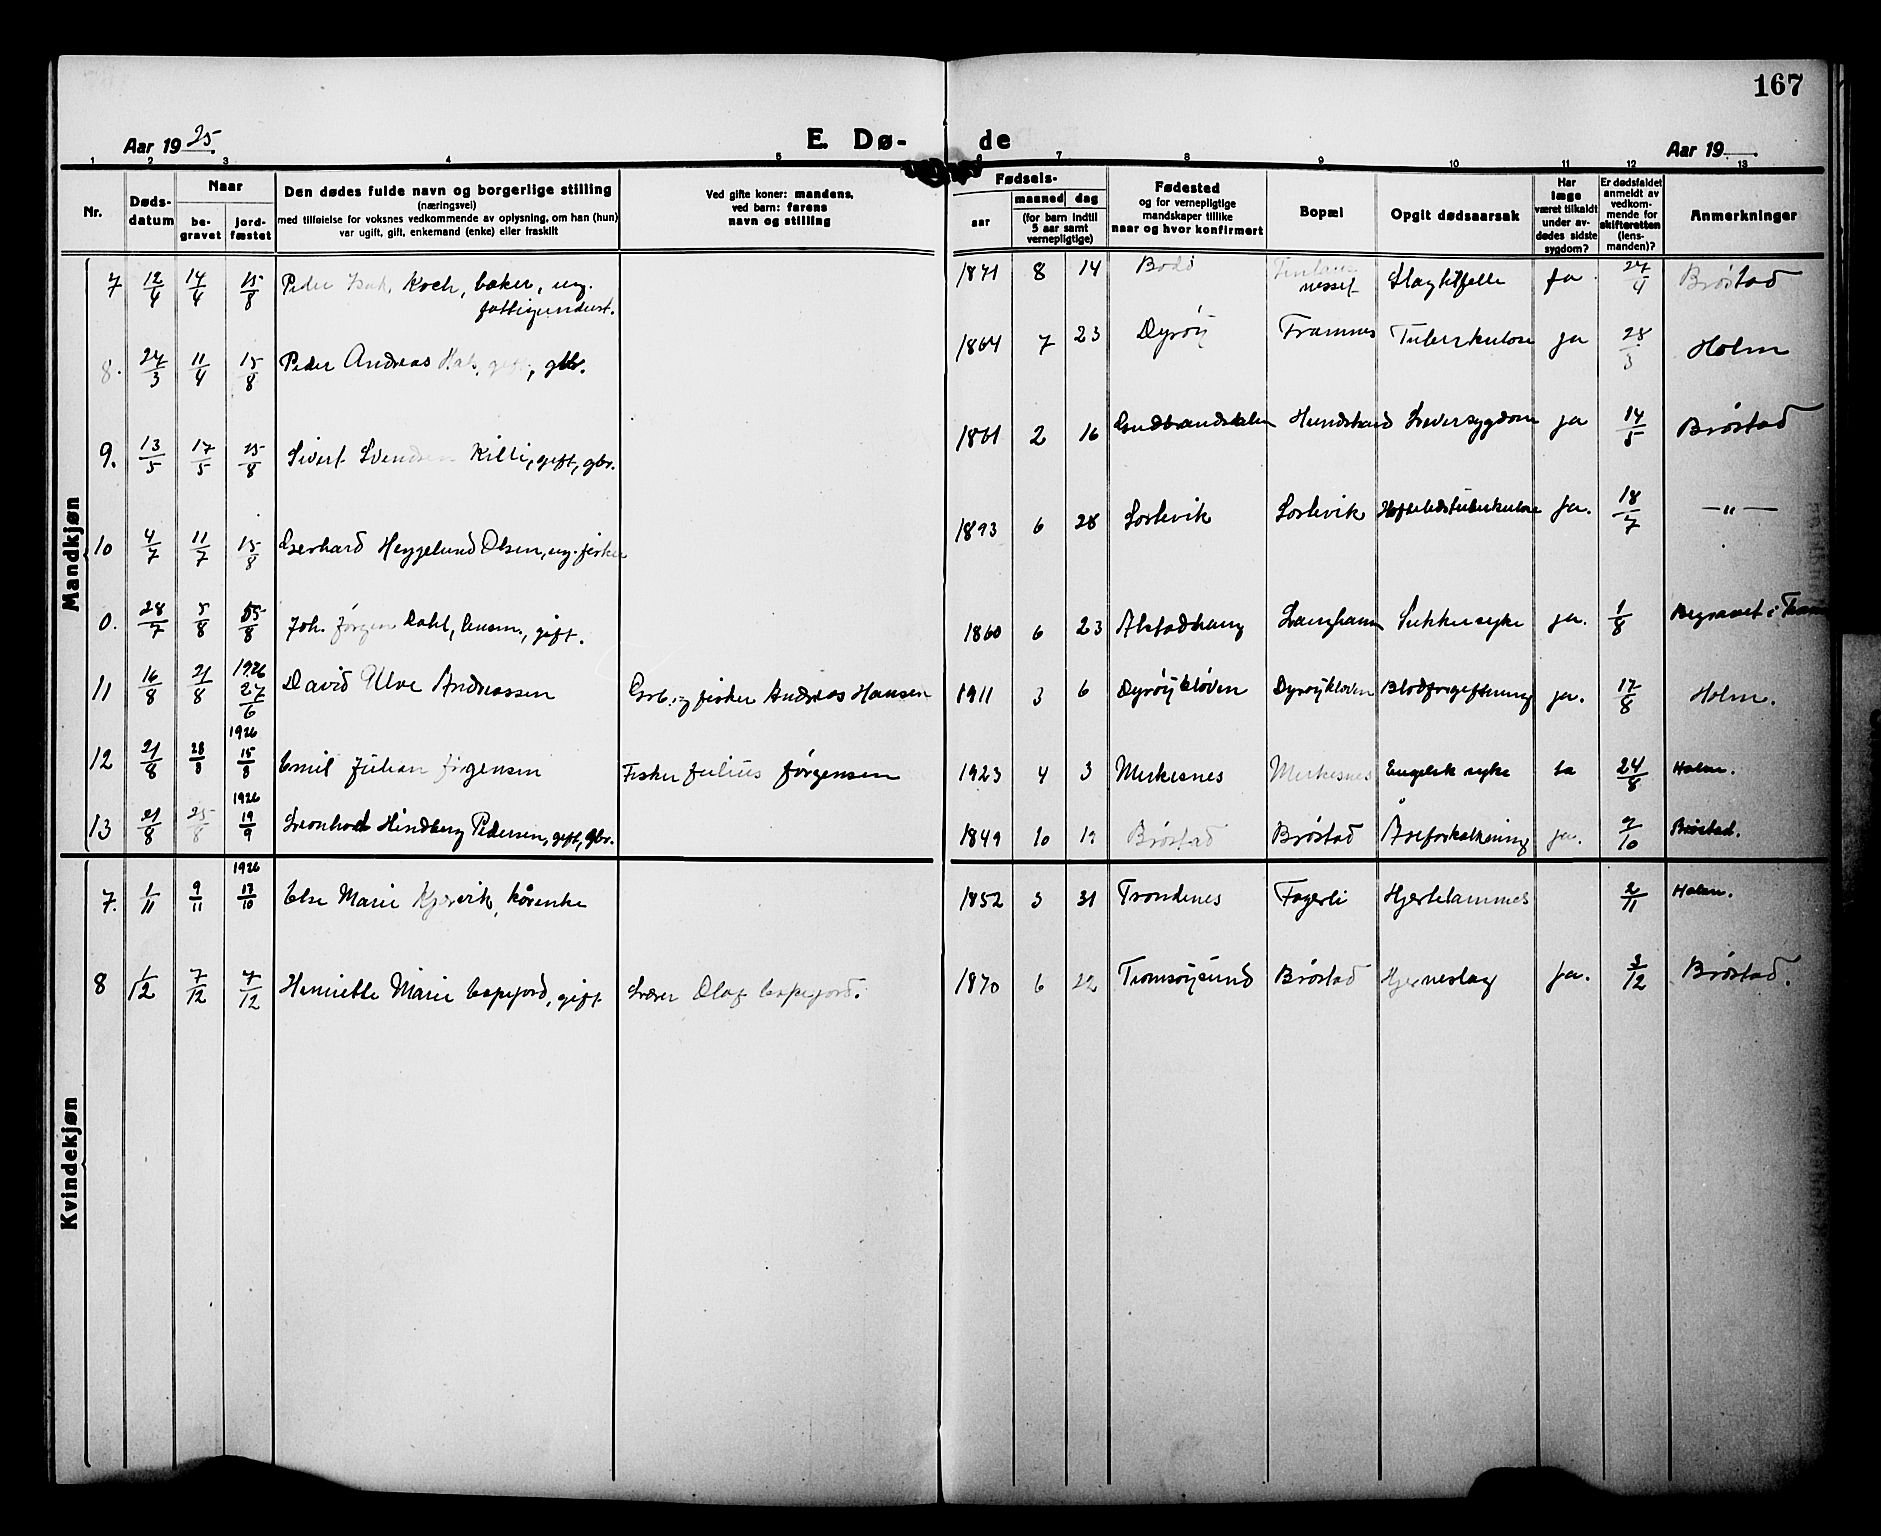 167
Aar 1925.
E. Dø-
de
Aar 19
1 2 3 4 5 6 7 8 9 10 11 12 13
Nr.
Døds-
datum
Naar
be-
gravet
jord-
fæstet
Den dødes fulde navn og borgerlige stilling
(næringsvei)
med tilføielse for voksnes vedkommende av oplysning, om han (hun)
var ugift, gift, enkemand (enke) eller fraskilt
Ved gifte koner: mandens,
ved barn: farens
navn og stilling
Fødsels-
aar
maaned dag
(for barn indtil
5 aar samt
vernepligtige)
Fødested
og for vernepligtige
mandskaper tillike
naar og hvor konfirmert
Bopæl
Opgit dødsaarsak
Har
læge
været tilkaldt
under av-
dødes sidste
sygdom?
Er dødsfaldet
anmeldt av
vedkom-
mende for
skifteretten
(lens-
manden)?
Anmerkninger
Mandkjøn
7 12/4 14/4 15/8 Peder Koch, baker, ug. 1871 8 14 Bodö nesset Slagtilfelle ja 27/4 Bröstad
8. 24/3 11/4 15/8 Peder Andreas gift, gbr. 1864 7 23 Dyröy Framnes Tuberkulose ja 28/3 Holm
9. 13/5 17/5 15/8 Sivert Svendsen Killi, gift, gbr. 1861 2 16 Gudbrandsdalen Hundstrand Leversygdom ja 14/5 Bröstad
10 4/7 11/7 15/8 Gerhard Heggelund Olsen, ug. fisker 1893 6 28 Sörlevik Sörlevik Hofteledstuberkulose Ja. 18/7 —"—
0. 28/7 5/8 15/8 Joh. Jörgen Dahl, gift. 1860 6 23 Alstadhaug Langhamn Sukkersyke ja. 1/8 Begravet i
11 16/8 21/8 1926 27/6 David Ulve Andreassen Grb. og fisker Andreas Hansen 1911 3 6 Dyröykloven Dyröykloven Blodforgiftning ja. 17/8 Holm.
12 21/8 28/8 1926 15/8 Emil Julian Jörgensen Fisker Julius Jörgensen 1923 4 3 Merkesnes Merkesnes Engelsk syke Ja 24/8 Holm.
13 21/8 25/8 1926 19/9 Leonhard Hindberg Pedersen, gift, gbr. 1849 10 Bröstad Bröstad Åreforkalkning ja. /10 Bröstad.
Kvindekjøn
7. 1/11 9/11 1926 17/10 Else Marie Kjervik, kårenke 1852 3 31 Trondenes Fagerli Hjertelammes 2/11 Holm.
8 1/12 7/12 7/12 Henriette Marie Espejord, gift Lærer Olaf Espejord. 1870 6 22 Tromsöysund Bröstad Hjerneslag Ja. 3/12 Bröstad.